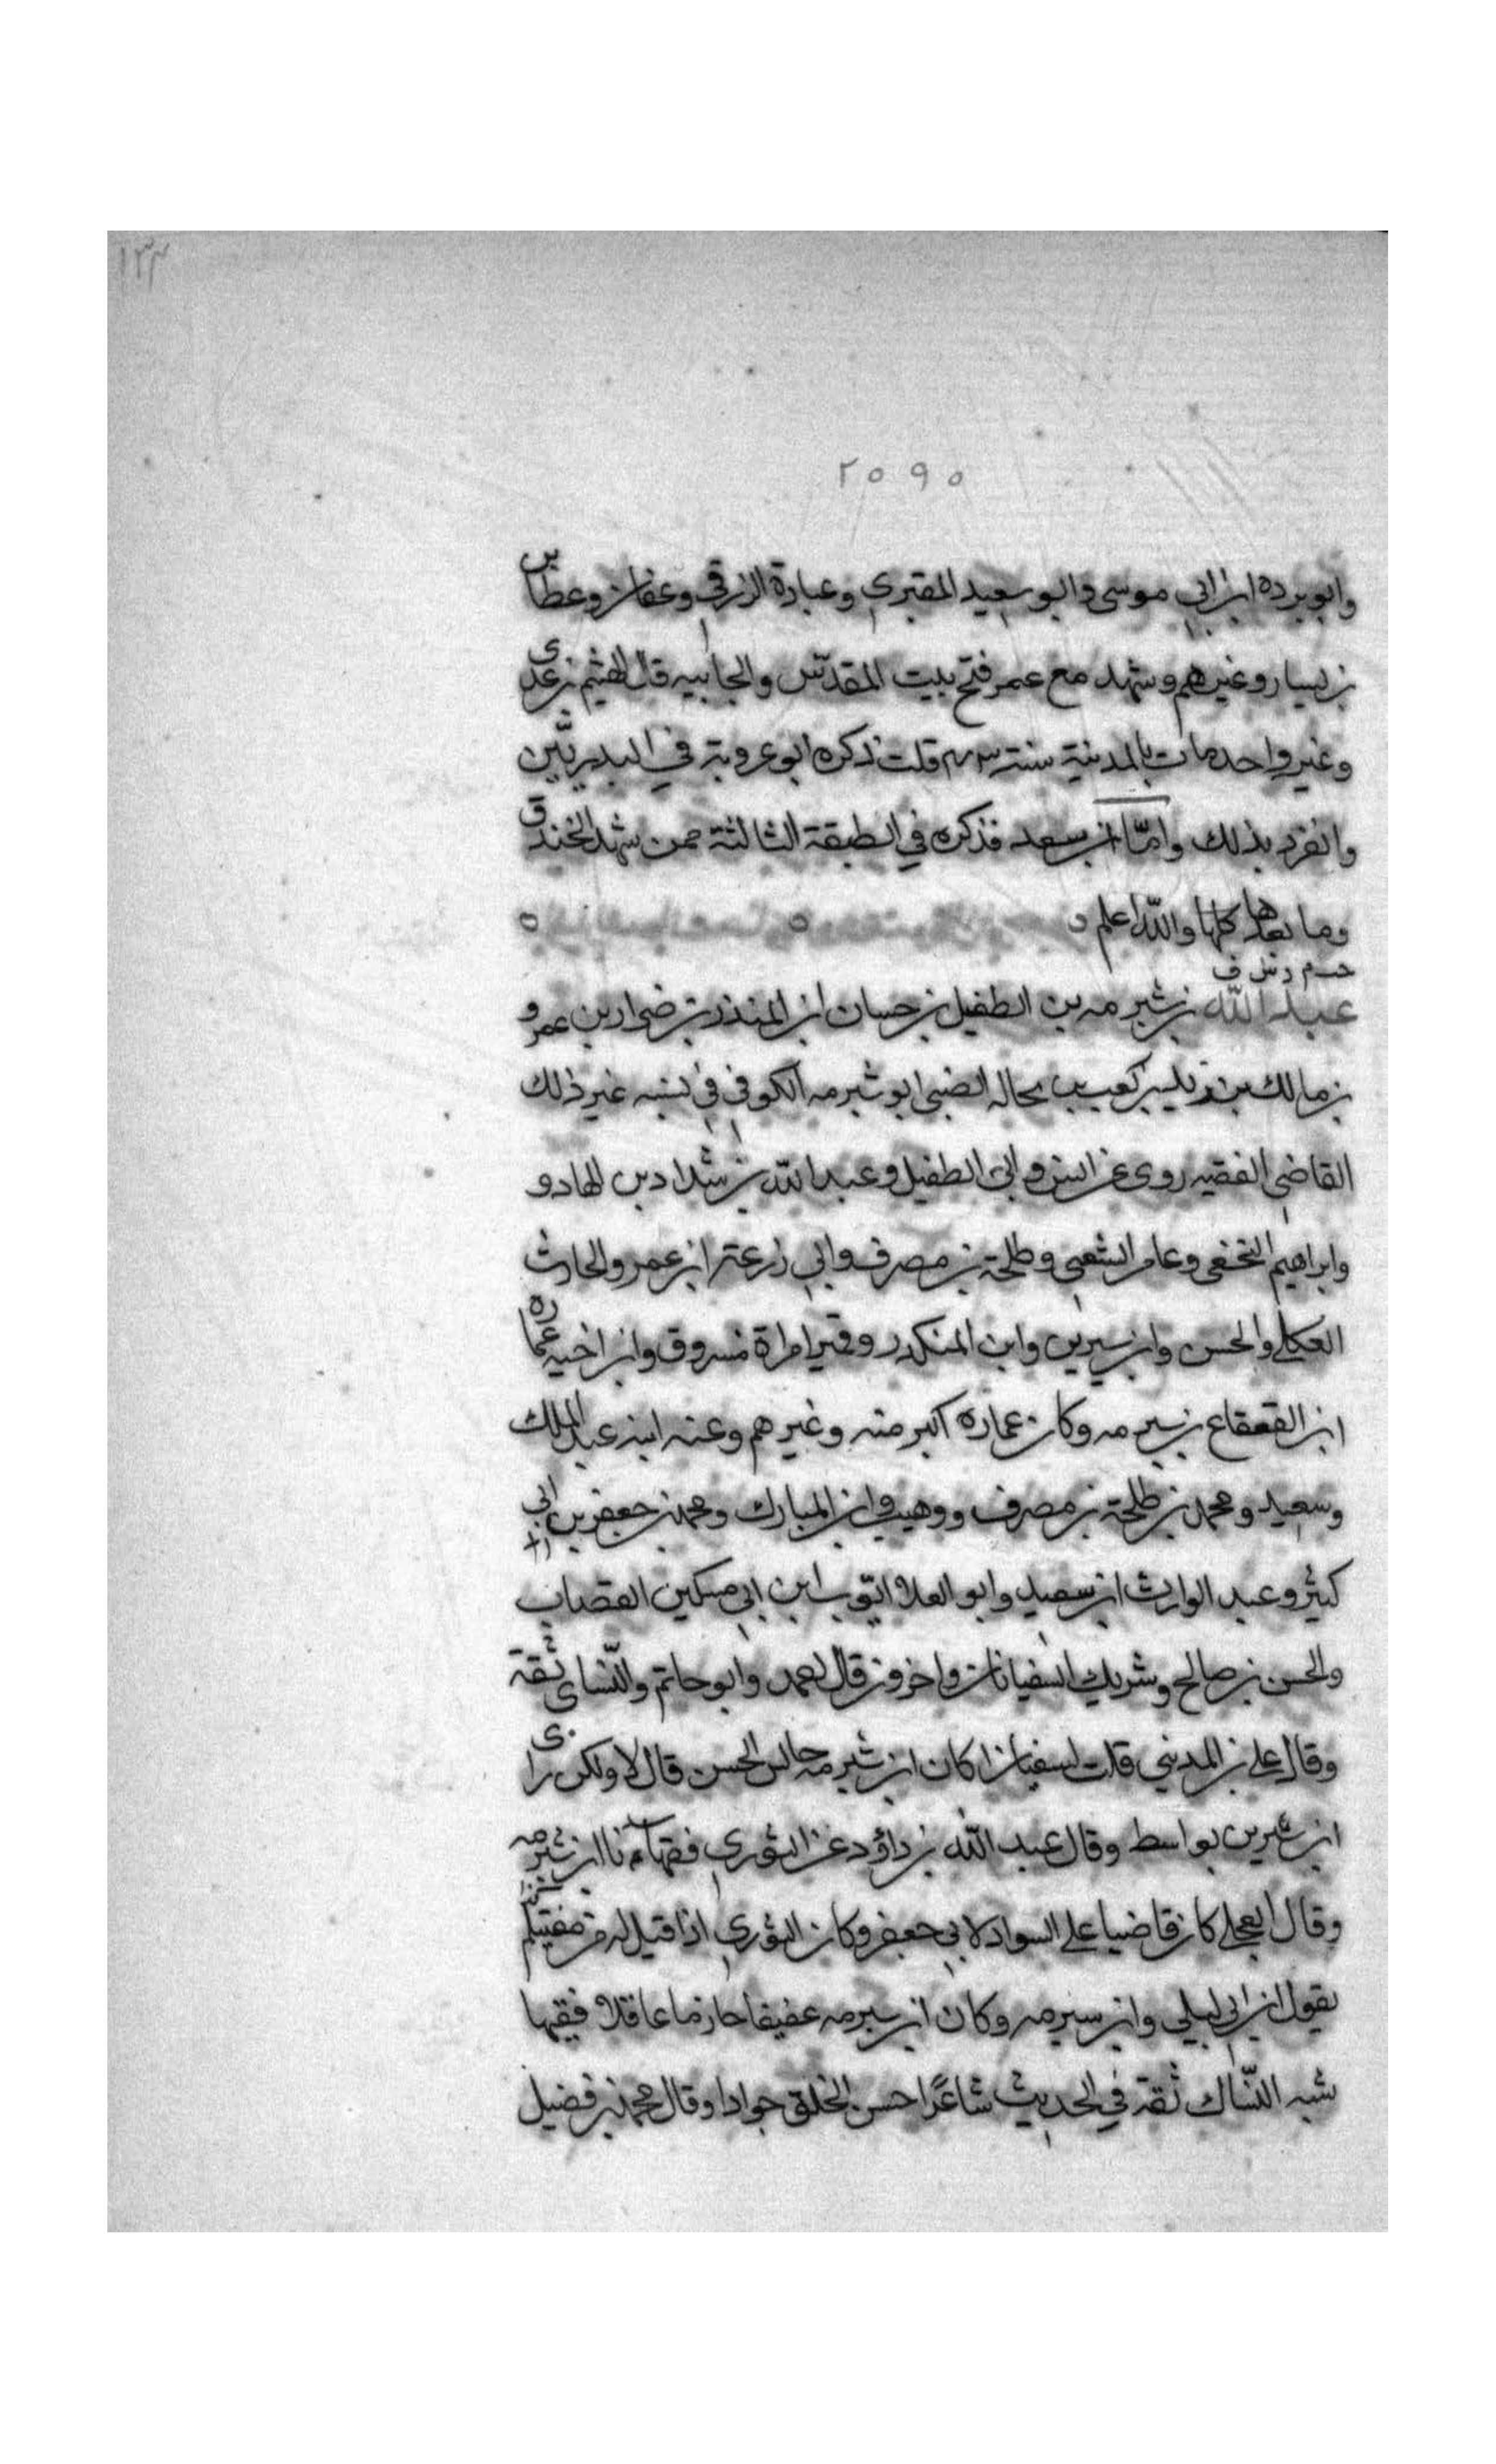 ١٣٣
٢٥٩٥
وابو برده ابن ابي موسى وابو سعيد المقبري وعبادة الزرقي وعفان وعطا بن
بن يسار وغيرهم وشهد مع عمر فتح بيت المقدّس والجابيه قال الهيثم بن عدى
وغير واحد مات بالمدينة سنة ٣٣ قلت ذكره ابو عروبة في البدريّين
وانفرد بذلك وامّا ابن سعد فذكره في الطبقة الثالثة ممن شهد الخندق
وما بعدها كلها والله اعلم
عبد الله بن شبرمه بن الطفيل بن حسان ابن المنذر بن ضرار بن عمرو
بن مالك بن زيد بن كعب بن بجاله الضبى ابو شبرمه الكوفي في نسبه غير ذلك
القاضى الفقيه روى عن انس وابى الطفيل وعبد الله بن شداد بن الهاد و
وابراهيم النخعى وعامر الشعبى وطلحة بن مصرف وابي زرعة ابن عمرو والحارث
العكلي والحسن وابن سيرين وابن المنكدر وقمير امراة مسروق وابن اخيه عماره
ابن القعقاع بن شبرمه وكان عماره اكبر منه وغيرهم وعنه ابنه عبد الملك
وسعيد ومحمد بن طلحة بن مصرف ووهيب وابن المبارك ومحمد بن جعفر بن ابي
كثير وعبد الوارث ابن سعيد وابو العلا ايّوب ابن ابي مسكين القصاب
والحسن بن صالح وشريك السفيانان واخرون قال احمد وابو حاتم والنّساى ثقة
وقال علي بن المديني قلت لسفيان اكان ابن شبرمه جالس الحسن قال لا ولكن راى
ابن سيرين بواسط وقال عبد الله بن داؤد عن الثوري فقهاءنا ابن شبرمه
وقال العجلي كان قاضيا على السواد لابي جعفر وكان الثوري اذا قيل له من مفتيكم
يقول ابن ابي ليلى وابن شبرمه وكان ابن شبرمه عفيفا حازما عاقلا فقيها
يشبه النّساك ثقة في الحديث شاعرًا حسن الخلق جوادا وقال محمد بن فضيل